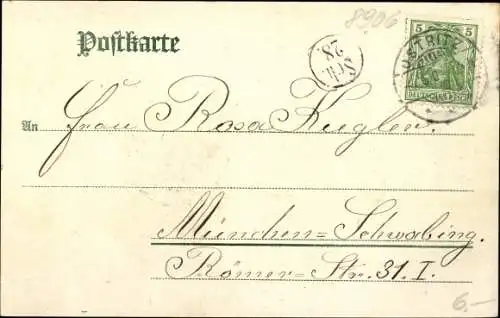 8906
Postkarte
28.
Sch.
OSTRITZ
5 5
DEUTSCHES REICH
An Frau Rosa Kugler.
München=Schwabing.
Römer=Str. 31. I.
6.-